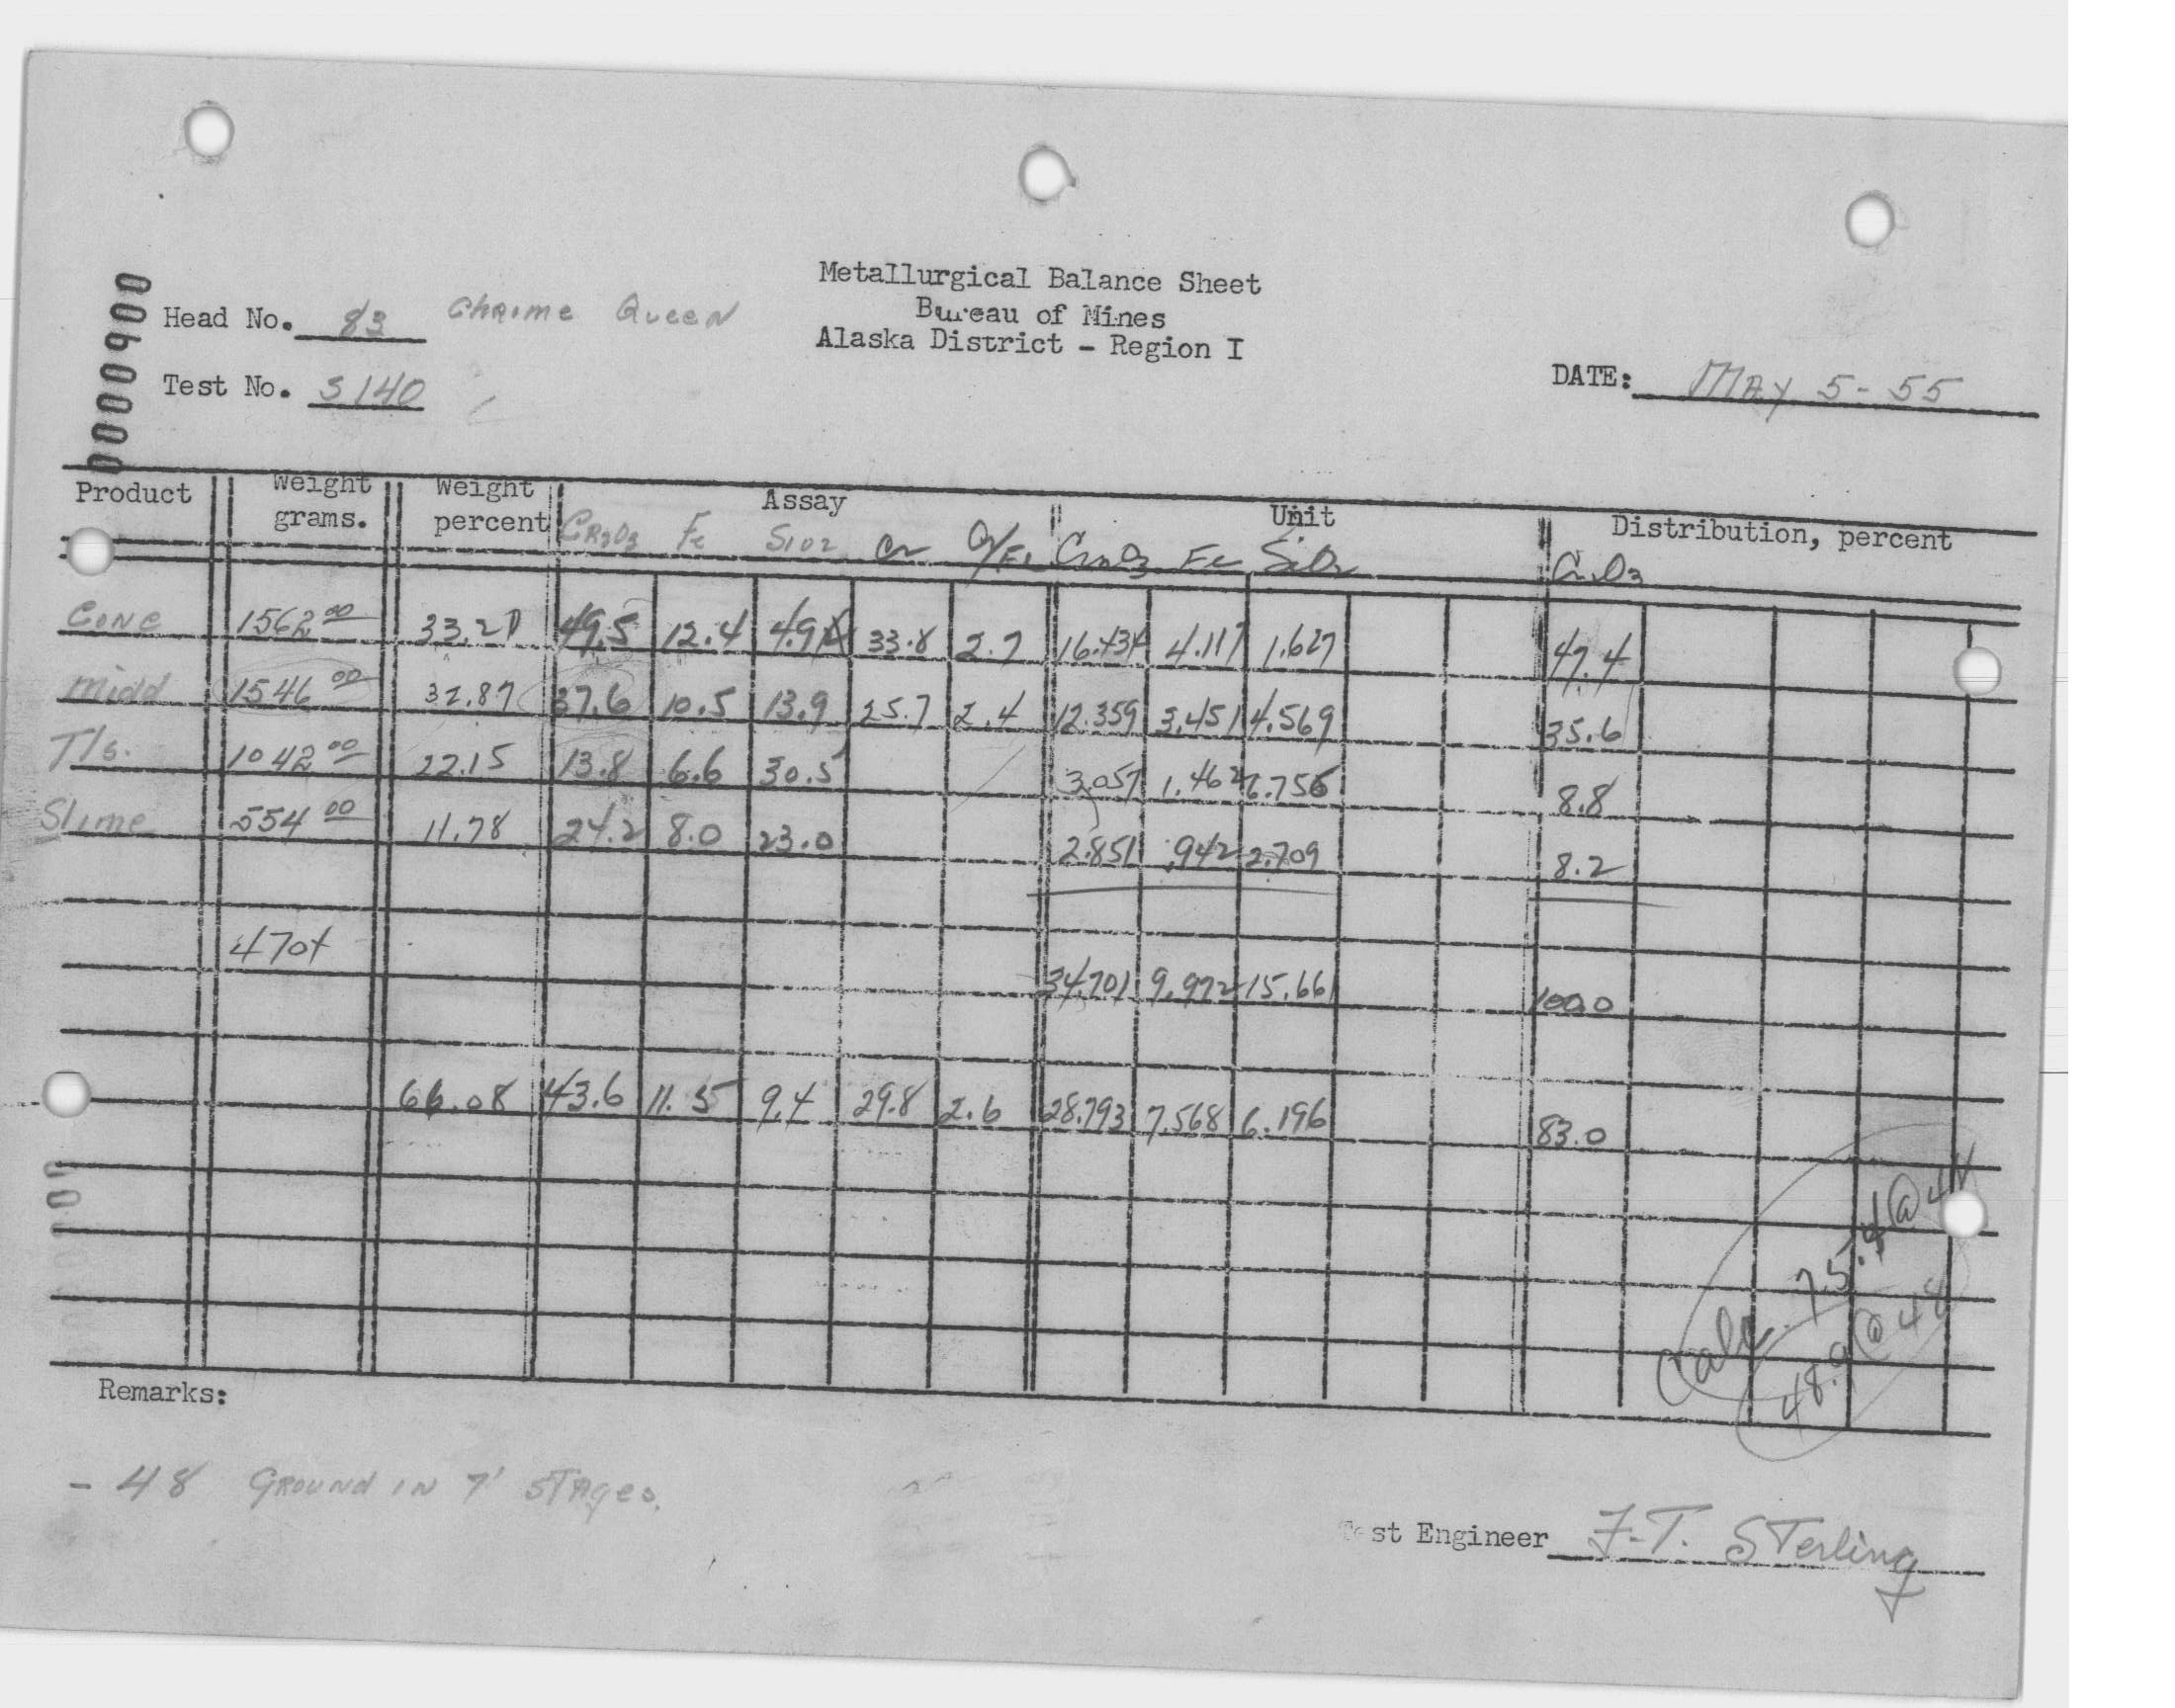 Metallurgical Balance Sheet
Bureau of Mines
Alaska District - Region I
0000900
Head No. 83 Chrome Queen
Test No. S140
DATE: MAY 5-55
Product Weight grams. Weight percent Assay Unit Distribution, percent
CR2O3 Fe SiO2 Cr Cr/Fe Cr2O3 Fe SiO2 Cr2O3
Conc 1562 00 33.21 49.5 12.4 4.9 33.8 2.7 16.434 4.117 1.627 47.4
Midd 1546 00 32.87 37.6 10.5 13.9 25.7 2.4 12.359 3.451 4.569 35.6
Tls. 1042 00 22.15 13.8 6.6 30.5 3.057 1.462 6.756 8.8
Slime 554 00 11.78 24.2 8.0 23.0 2.851 .942 2.709 8.2
4704 34.701 9.972 15.661 100.0
66.08 43.6 11.5 9.4 29.8 2.6 28.793 7.568 6.196 83.0
Calc. 75.4 @ 44
48.9 @ 48
Remarks:
- 48 GROUND IN 7' STAges.
Test Engineer F.T. Sterling